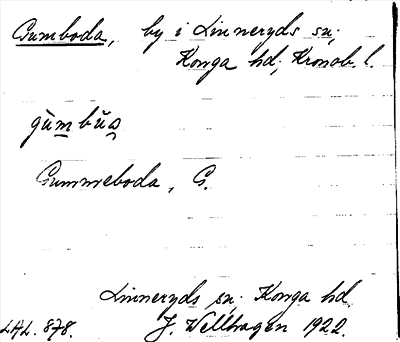 Gumboda, by i Linneryds sn,
Konga hd, Kronob. l.
gùmbŭa
Gummeboda, G.
Linneryds sn. Konga hd.
LAL. 878. J. Wellhagen 1922.